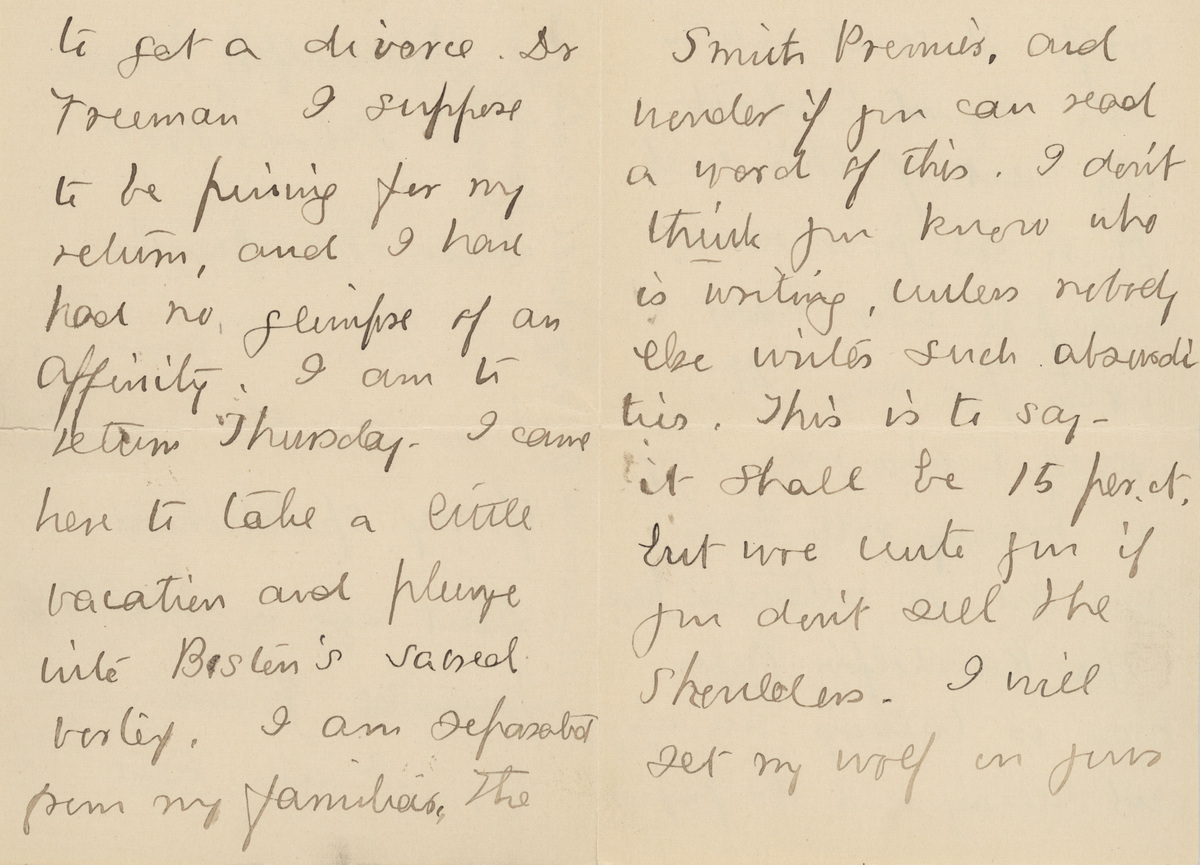 to get a divorce. Dr
Freeman I suppose
to be pining for my
return, and I have
had no glimpse of an
Affinity. I am to
return Thursday. I came
here to take a little
vacation and plunge
into Boston's sacred
vortex. I am separated
from my familiar, the
Smith Premier, and
wonder if you can read
a word of this. I don't
think you know who
is writing, unless nobody
else writes such absurdi
ties. This is to say-
it shall be 15 per.ct.
but woe unto you if
you don't sell the
Shoulders. I will
set my wolf on yours